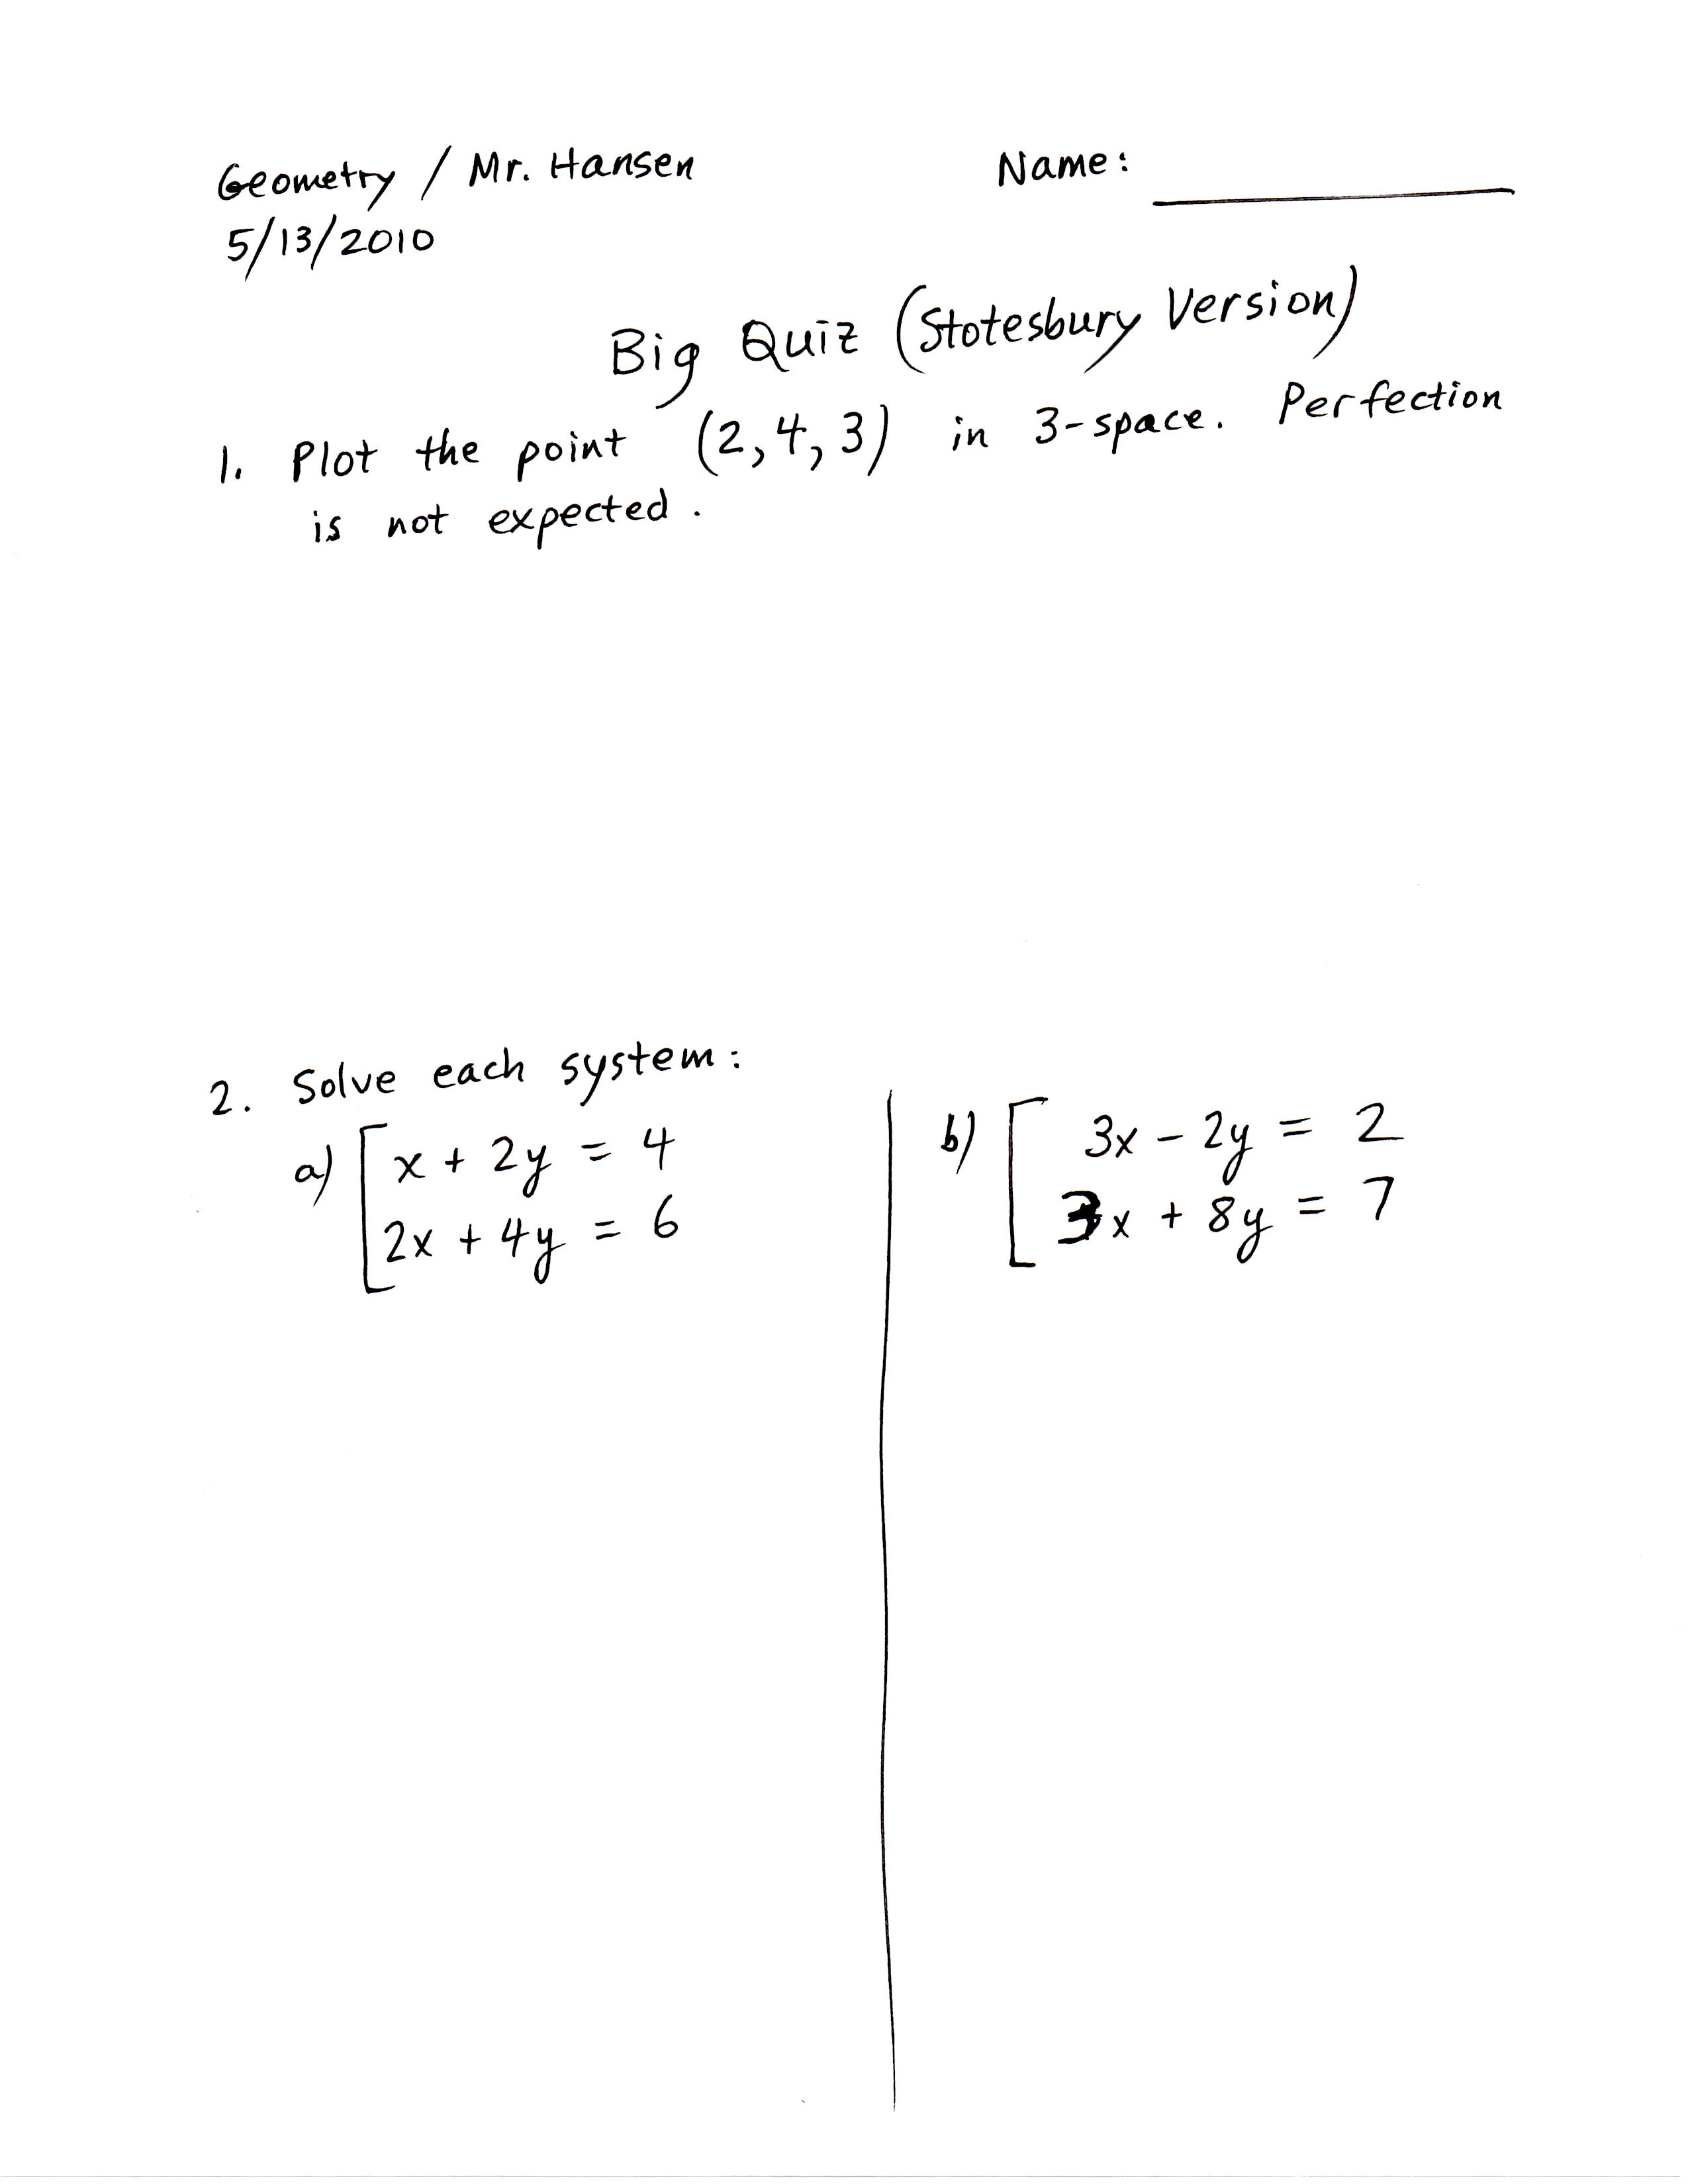 Geometry / Mr. Hansen
Name:
5/13/2010
Big Quiz (Stotesbury Version)
1. Plot the point (2,4,3) in 3-space. Perfection
is not expected.
2. Solve each system:
a) x + 2y = 4
2x + 4y = 6
b) 3x - 2y = 2
3x + 8y = 7